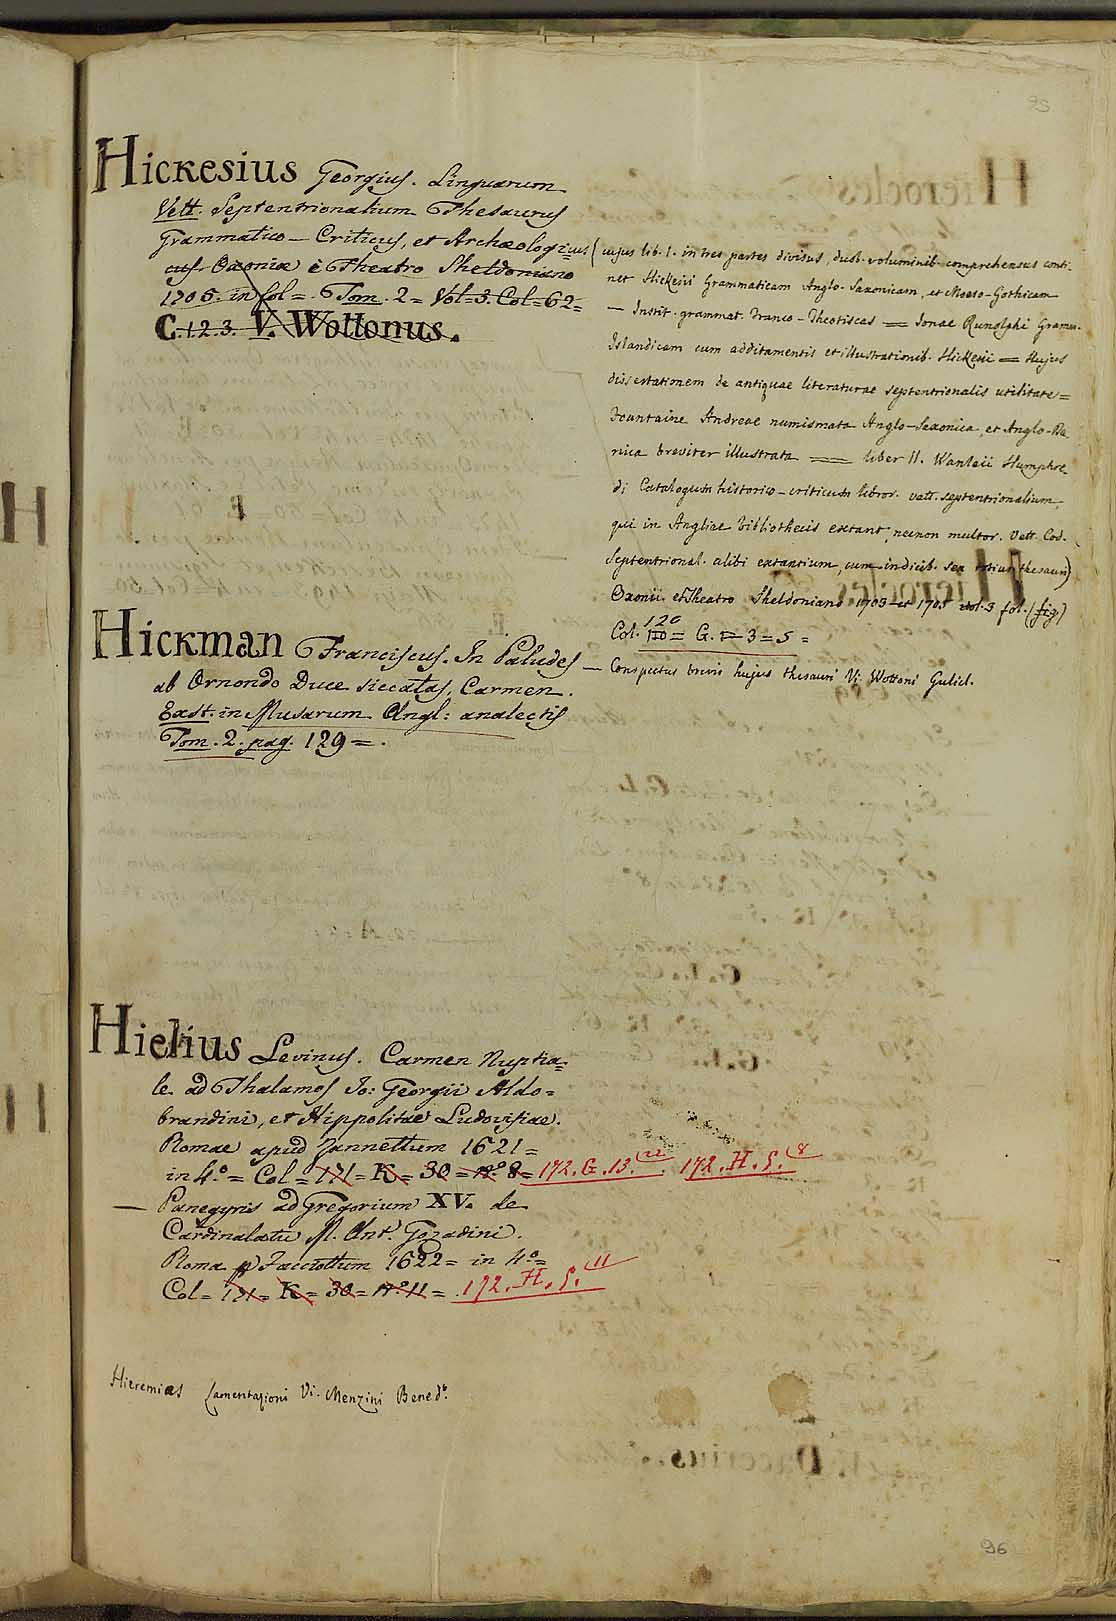 95
Hickesius Georgius. Linguarum
Vett. Septentrionalium Thesaurus
Grammatico-Criticus, et Archæologicus
cus. Oxoniæ è Theatro Sheldoniano
1705. in fol=. Tom. 2= Vol=3. Col=62=
C. 1.2.3. V. Wottonus.
(cujus lib. I. in tres partes divisus, duob. voluminib. comprehensus conti-
net Hickesii Grammaticam Anglo-Saxonicam, et Moeso-Gothicam
— Instit. grammat. Franco-Theotiscas = Jonae Runolphi Gramm.
Islandicam cum additamentis et illustrationib. Hickesii = Hujus
dissertationem de antiquae literaturae septentrionalis utilitate=
Fountaine Andreae numismata Anglo-Saxonica, et Anglo-Da
nica breviter illustrata == liber II. Wanleii Humphre
di Catalogum historico-criticum libror. vett. septentrionalium,
qui in Angliae bibliothecis extant, necnon multor. Vett. Cod.
Septentrional. alibi extantium, cum indicib. sex totius thesauri)
Oxonii e Theatro Sheldoniano 1703 et 1705 vol. 3 fol. (fig.)
120
Col. 110= G. 1= 3=5=
— Conspectus brevis hujus thesauri V. Wottoni Guliel.
Hickman Franciscus. In Paludes
ab Ornondo Duce siccatas, Carmen.
Exst. in Musarum Angl: analectis
Tom. 2. pag. 129=.
Hielius Levinus. Carmen Nuptia=
le ad Thalamos Jo: Georgii Aldo=
brandini, et Hippolitae Ludovisiae.
Romae apud Zannettum 1621=
in 4.º = Col= 171= K= 30= nº 8= 172. G. 13. 22 172. H. 5. 8
— Panegyris ad Gregorium XV. de
Cardinalatu M. Ant. Gozadini.
Roma p Facciottum 1622= in 4º=
Col= 171= K= 30= nº 11= 172. H. 5. 11
Hieremias Lamentazioni Vi. Menzini Bened.º
96